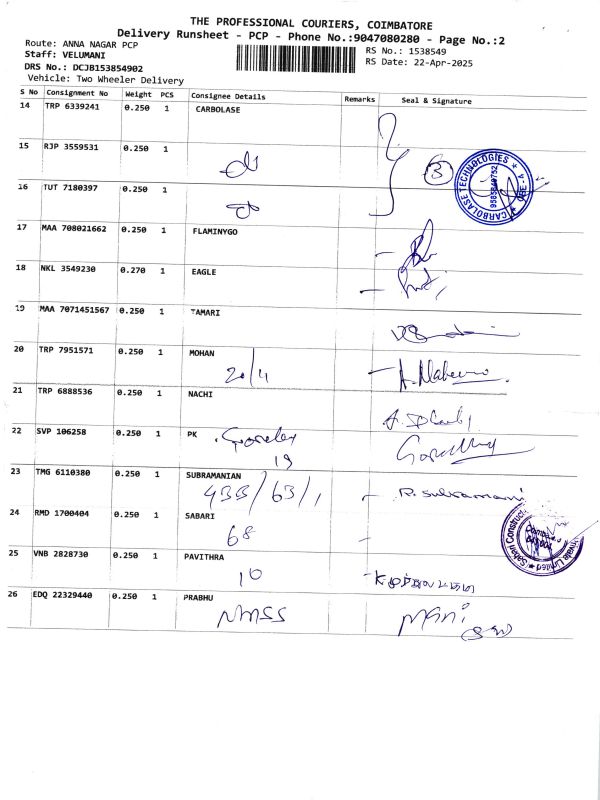 THE PROFESSIONAL COURIERS, COIMBATORE
Delivery Runsheet - PCP - Phone No.:9047080280 - Page No.:2
Route: ANNA NAGAR PCP
RS No.: 1538549
Staff: VELUMANI
RS Date: 22-Apr-2025
DRS No.: DCJB153854902
Vehicle: Two Wheeler Delivery
S No Consignment No Weight PCS Consignee Details Remarks Seal & Signature
14 TRP 6339241 0.250 1 CARBOLASE
15 RJP 3559531 0.250 1
3
CARBOLASE TECHNOLOGIES
16 TUT 7180397 0.250 1
17 MAA 708021662 0.250 1 FLAMINYGO
18 NKL 3549230 0.270 1 EAGLE
19 MAA 7071451567 0.250 1 TAMARI
20 TRP 7951571 0.250 1 MOHAN
20/4
21 TRP 6888536 0.250 1 NACHI
22 SVP 106258 0.250 1 PK
19
23 TMG 6110380 0.250 1 SUBRAMANIAN
433/63/1 R. Subramani
24 RMD 1700404 0.250 1 SABARI
68
25 VNB 2828730 0.250 1 PAVITHRA
10
26 EDQ 22329440 0.250 1 PRABHU
NMSS Mani